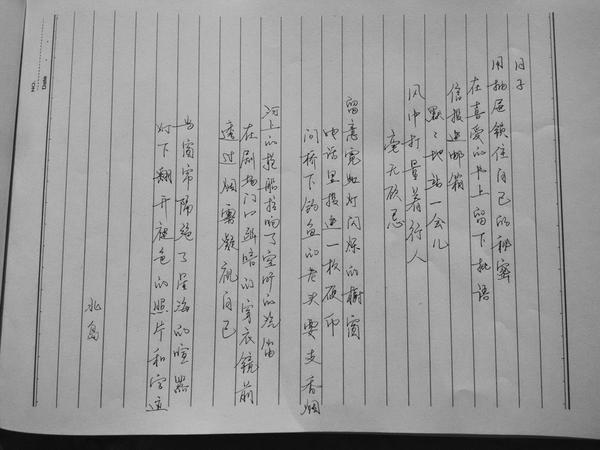 日子
用抽屉锁住自己的秘密
在喜爱的书上留下批语
信投进邮箱
默々地站一会儿
风中打量着行人
毫无顾忌
留意霓虹灯闪烁的橱窗
电话里投进一枚硬币
问桥下钓鱼的老头要支香烟
河上的轮船拉响了空旷的汽笛
在剧场门口幽暗的穿衣镜前
透过烟雾凝视自己
当窗帘隔绝了星海的喧嚣
灯下翻开褪色的照片和字迹
北岛
NO.
DATE